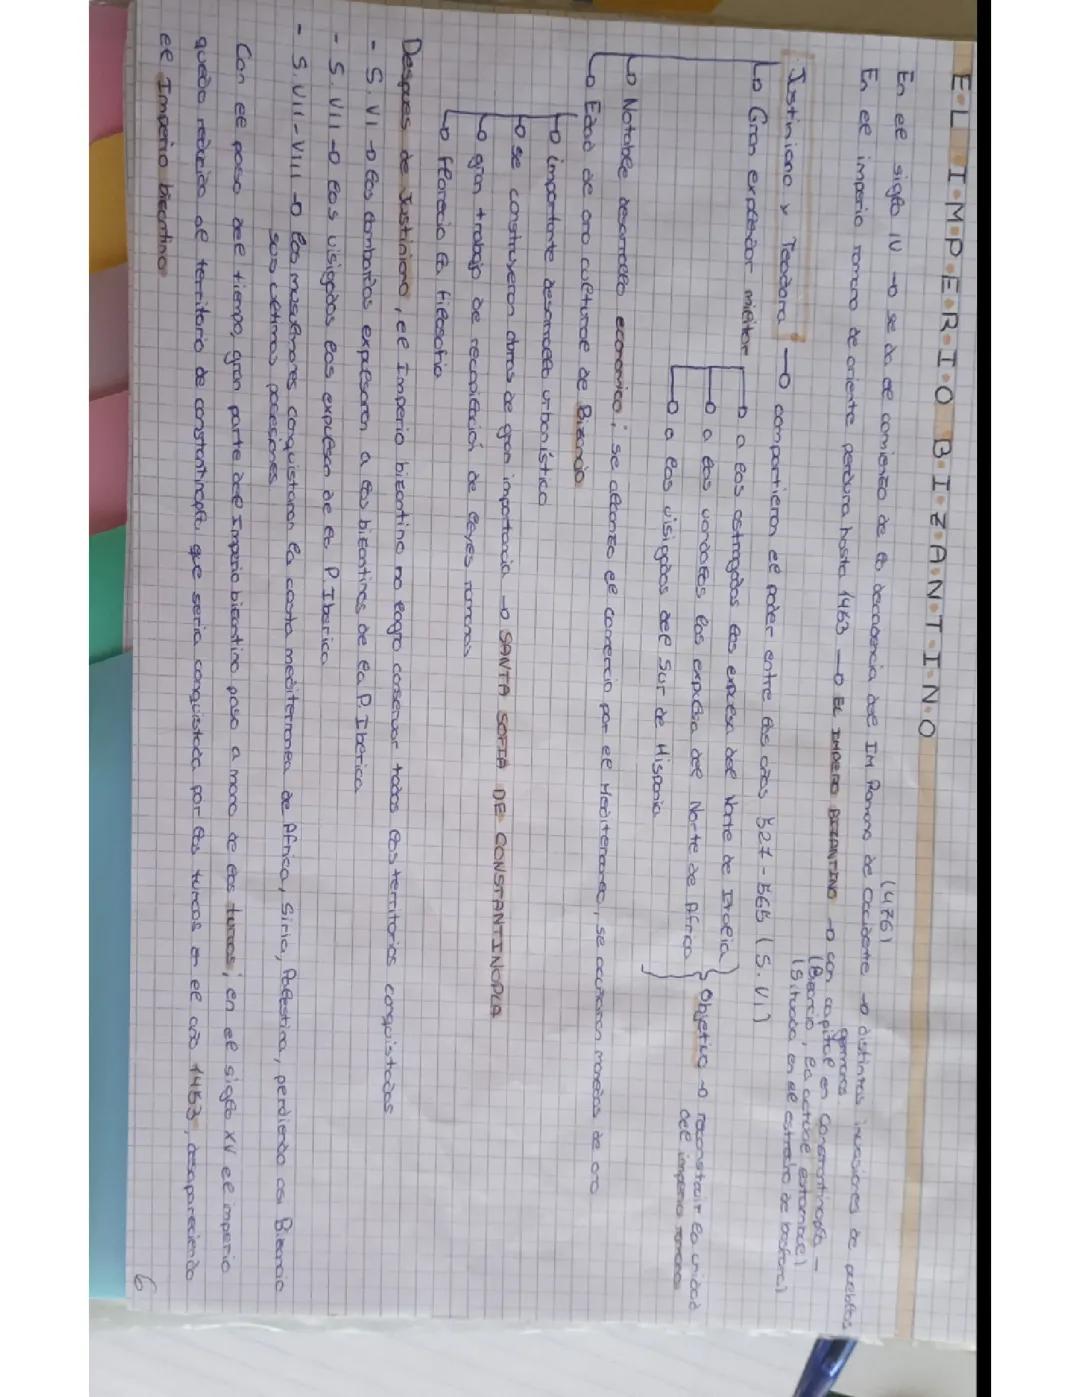 E·L I·M·P·E·R·I·O B·I·Z·A·N·T·I·N·O
(476)
En el siglo IV → se da el comienzo de la decadencia del Im Romano de Occidente → distintas invasiones de pueblos
germanos
En el imperio romano de oriente perdura hasta 1453 → EL IMPERIO BIZANTINO → con capital en Constantinopla -
(Bizancio, la actual estambul)
(Situada en el estrecho de bosforo)
Justiniano y Teodora → compartieron el poder entre los años 527-565 (S.VI)
→ Gran expansión militar → a los ostrogodos los expulsa del Norte de Italia
→ a los vandalos los expulsa del Norte de Africa
→ a los visigodos del Sur de Hispania
Objetivo → reconstruir la unidad
del imperio romano
→ Notable desarrollo economico; se alcanza el comercio por el Mediterraneo, se acuñaron monedas de oro
→ Edad de oro cultural de Bizancio
→ importante desarrollo urbanístico
→ se construyeron obras de gran importancia → SANTA SOFIA DE CONSTANTINOPLA
→ gran trabajo de recopilación de leyes romanas
→ florecio la filosofia
Despues de Justiniano, el Imperio bizantino no logro conservar todos los territorios conquistados
- S. VI → los lombardos expulsaron a los bizantinos de la P. Iberica
- S. VII → los visigodos los expulsan de la P. Iberica
- S. VII-VIII → los musulmanes conquistaron la costa mediterranea de Africa, Siria, Palestina, perdiendo asi Bizancio
sus ultimas posesiones.
Con el paso del tiempo, gran parte del Imperio bizantino paso a mano de los turcos; en el siglo XV el imperio
quedo reducido al territorio de constantinopla que seria conquistada por los turcos en el año 1453, desapareciendo
el Imperio bizantino
6